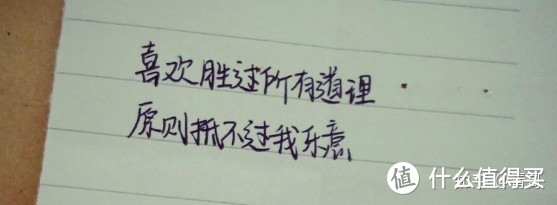 喜欢胜过所有道理
原则抵不过我乐意
值 什么值得买